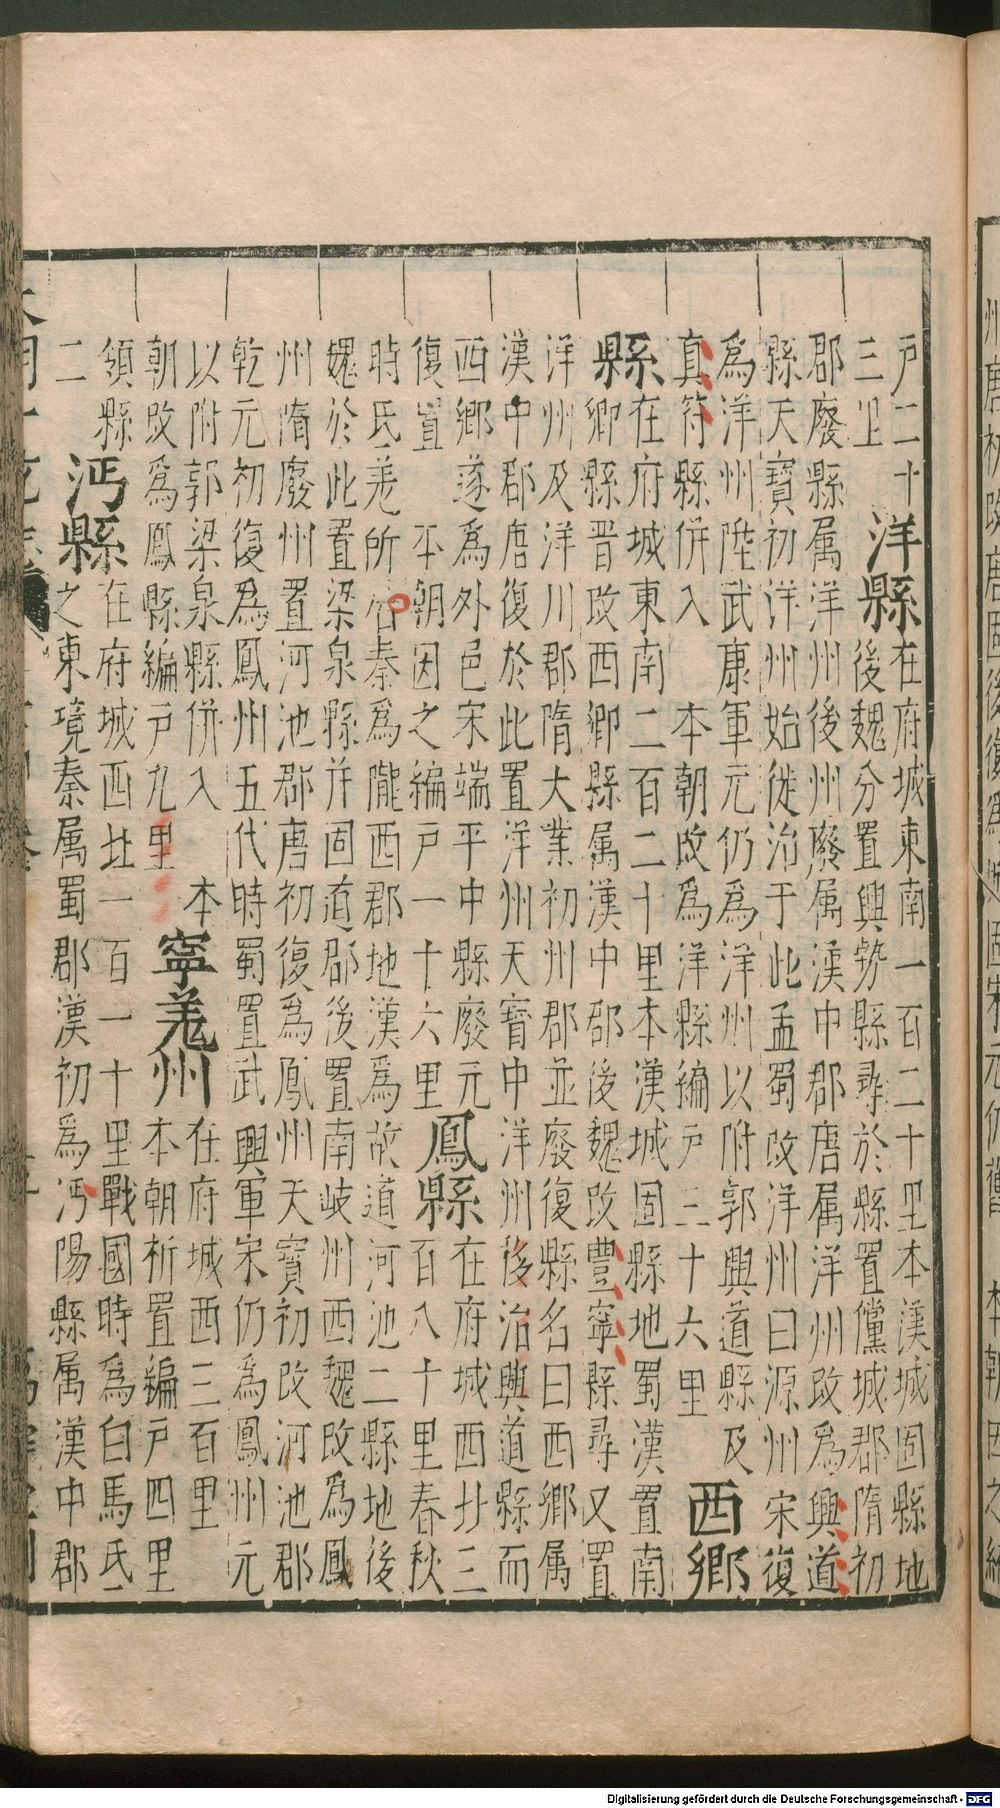 戶二十
三里
洋縣
在府城東南一百二十里本漢城固縣地
後魏分置興勢縣尋於縣置儻城郡隋初
郡廢縣属洋州後州廢属漢中郡唐属洋州改為興道
縣天寶初洋州始徙治于此孟蜀改洋州曰源州宋復
為洋州陞武康軍元仍為洋州以附郭興道縣及
真符縣併入 本朝改為洋縣編戶三十六里
西鄉
縣
在府城東南二百二十里本漢城固縣地蜀漢置南
鄉縣晉改西鄉縣属漢中郡後魏改豐寧縣尋又置
洋州及洋川郡隋大業初州郡並廢復縣名曰西鄉属
漢中郡唐復於此置洋州天寶中洋州後治興道縣而
西鄉遂為外邑宋端平中縣廢元
復置 本朝因之編戶一十六里
鳳縣
在府城西北三
百八十里春秋
時氐羌所居秦為隴西郡地漢為故道河池二縣地後
魏於此置梁泉縣并固道郡後置南岐州西魏改為鳳
州隋廢州置河池郡唐初復為鳳州天寶初改河池郡
乾元初復為鳳州五代時蜀置武興軍宋仍為鳳州元
以附郭梁泉縣併入 本
朝改為鳳縣編戶九里
寧羌州
在府城西三百里
本朝析置編戶四里
領縣
二
沔縣
在府城西北一百一十里戰國時為白馬氐
之東境秦属蜀郡漢初為沔陽縣属漢中郡
Digitalisierung gefördert durch die Deutsche Forschungsgemeinschaft - DFG